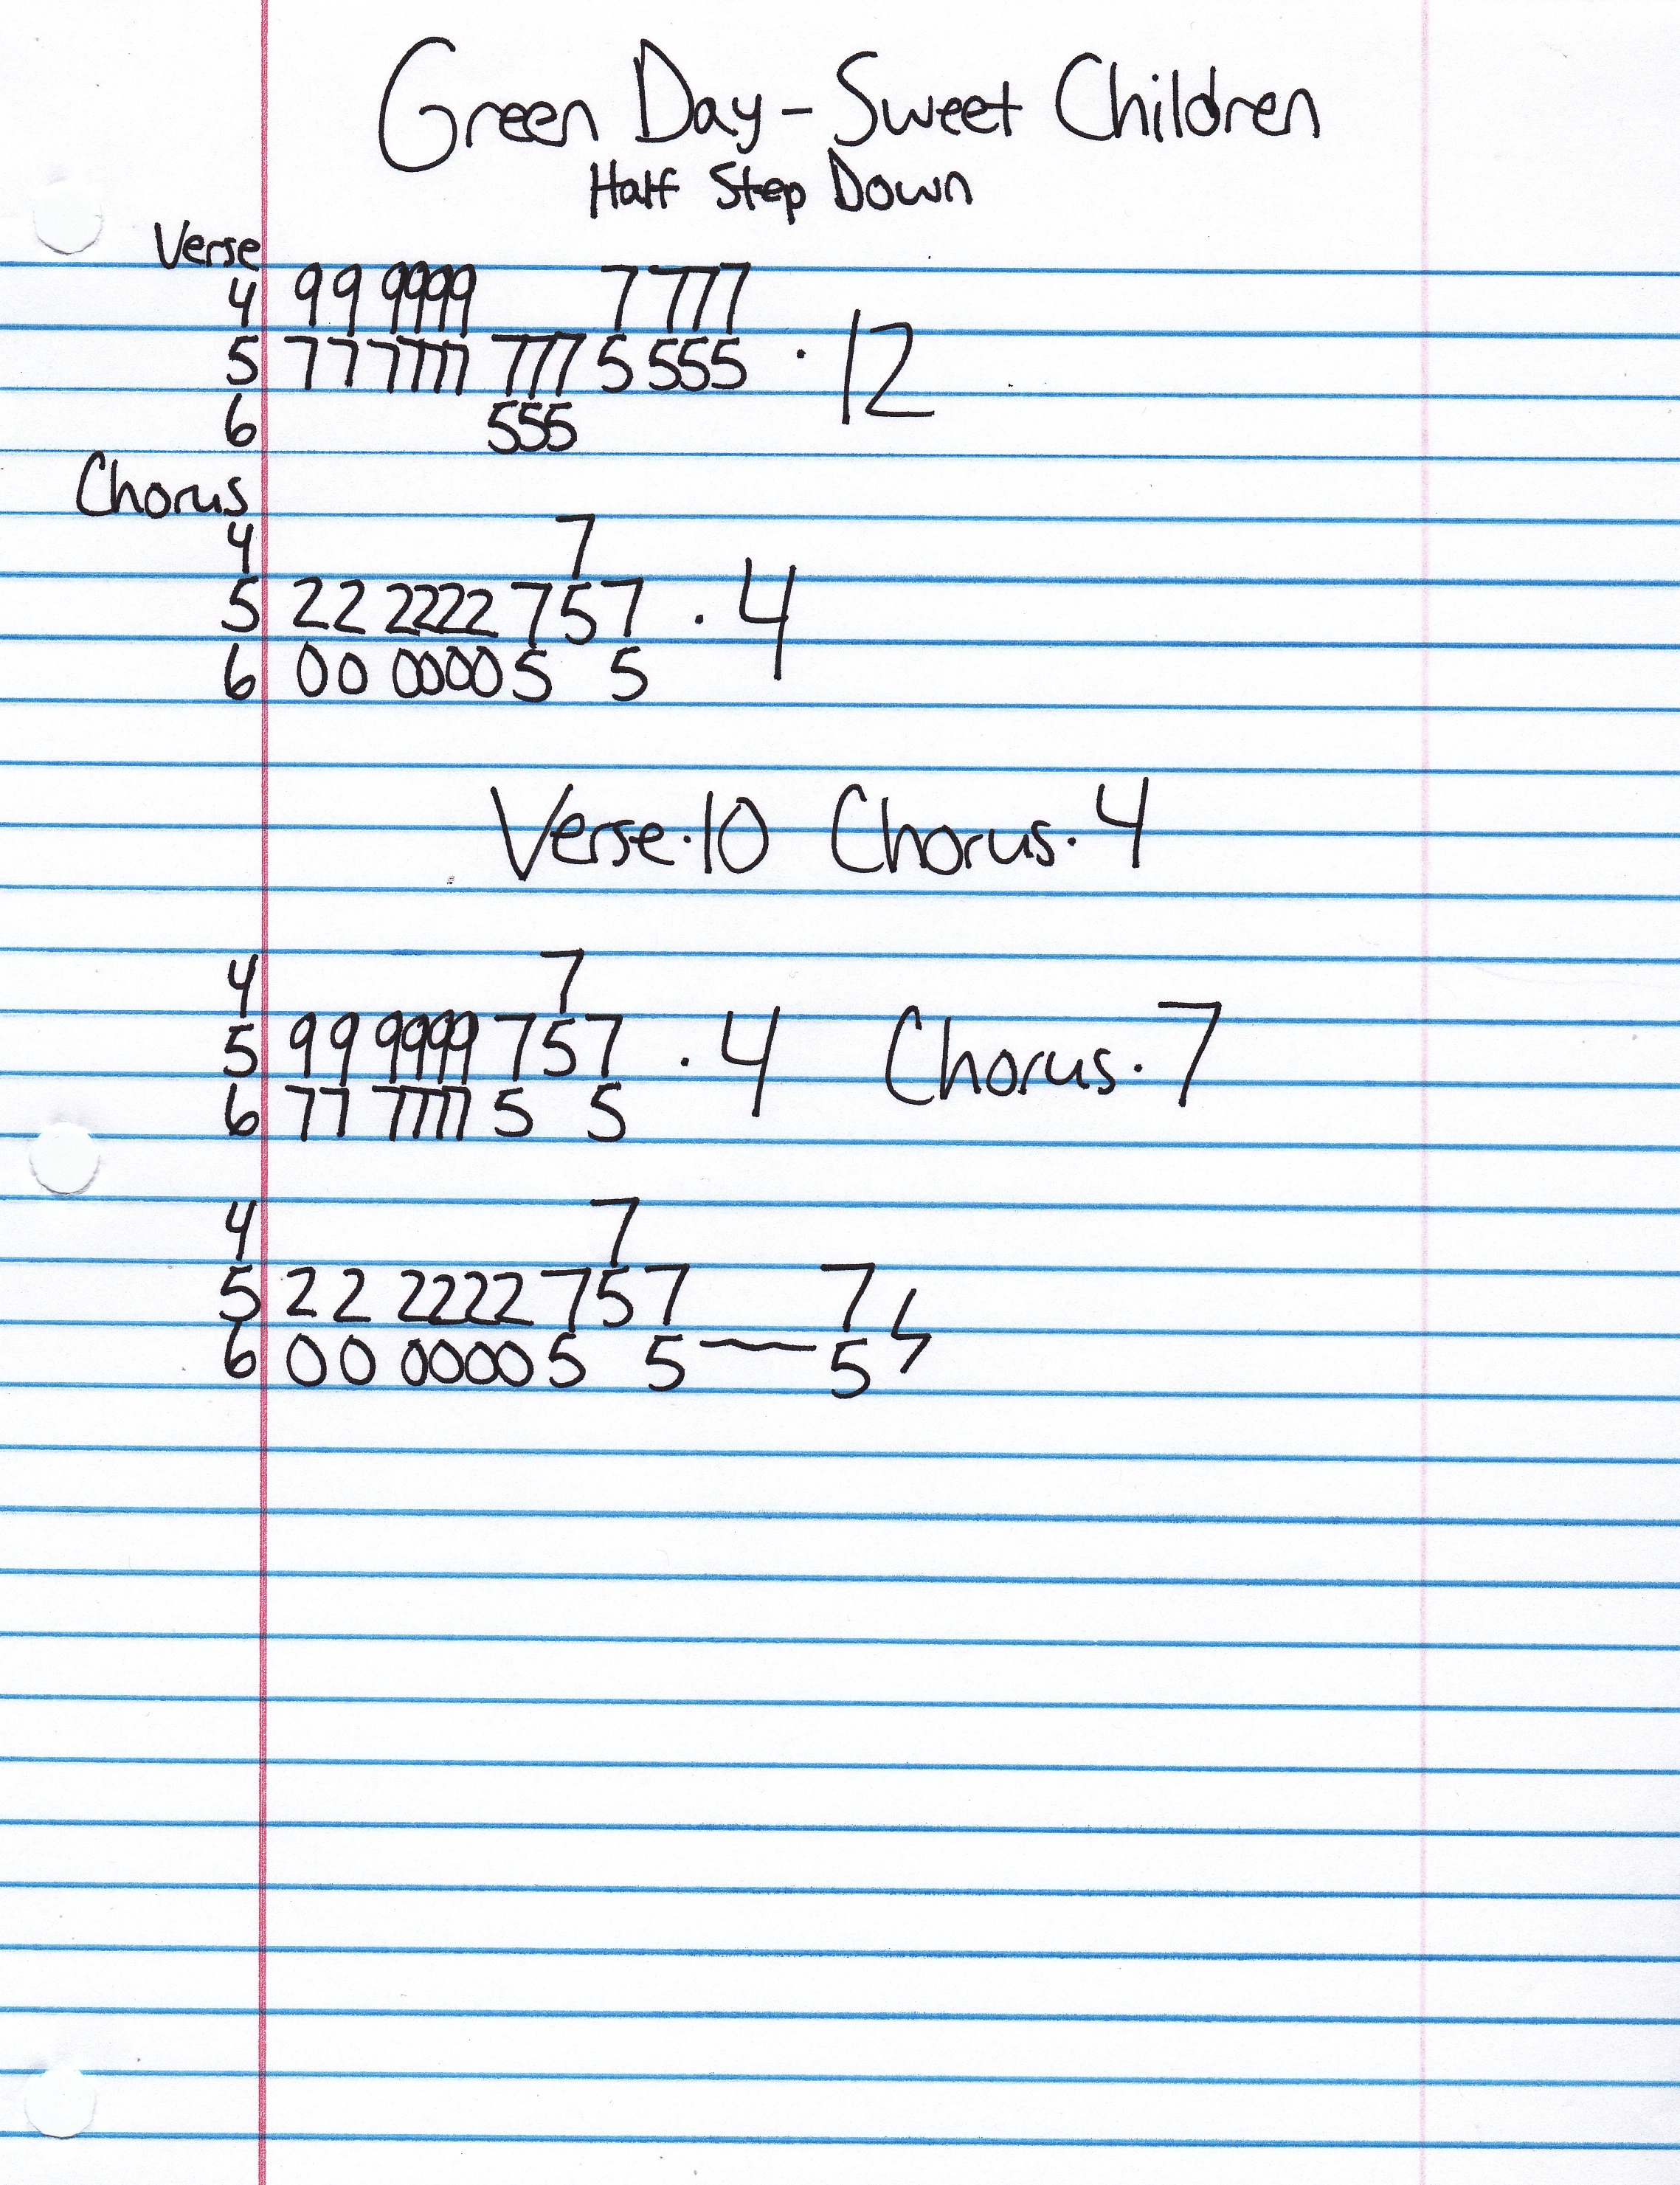 Green Day - Sweet Children
Half Step Down
Verse
4 99 9999 7 777
5 77 7777 777 5 555 · 12
6 555
Chorus
4 7
5 22 2222 757 · 4
6 00 0000 5 5
Verse·10 Chorus·4
4 7
5 99 9999 757 · 4 Chorus·7
6 77 7777 5 5
4 7
5 22 2222 757 7
6 00 0000 5 5 5